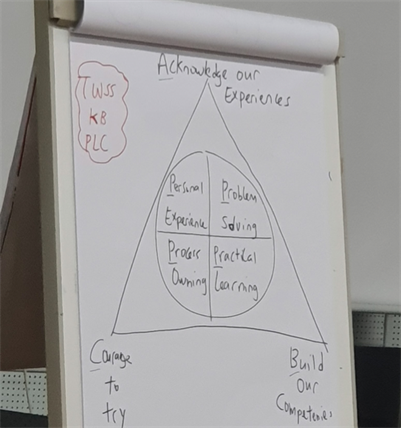 Acknowledge our
Experiences
TWSS
KB
PLC
Personal
Experience
Problem
Solving
Process
Owning
Practical
Learning
Courage
to
try
Build
Our
Competencies